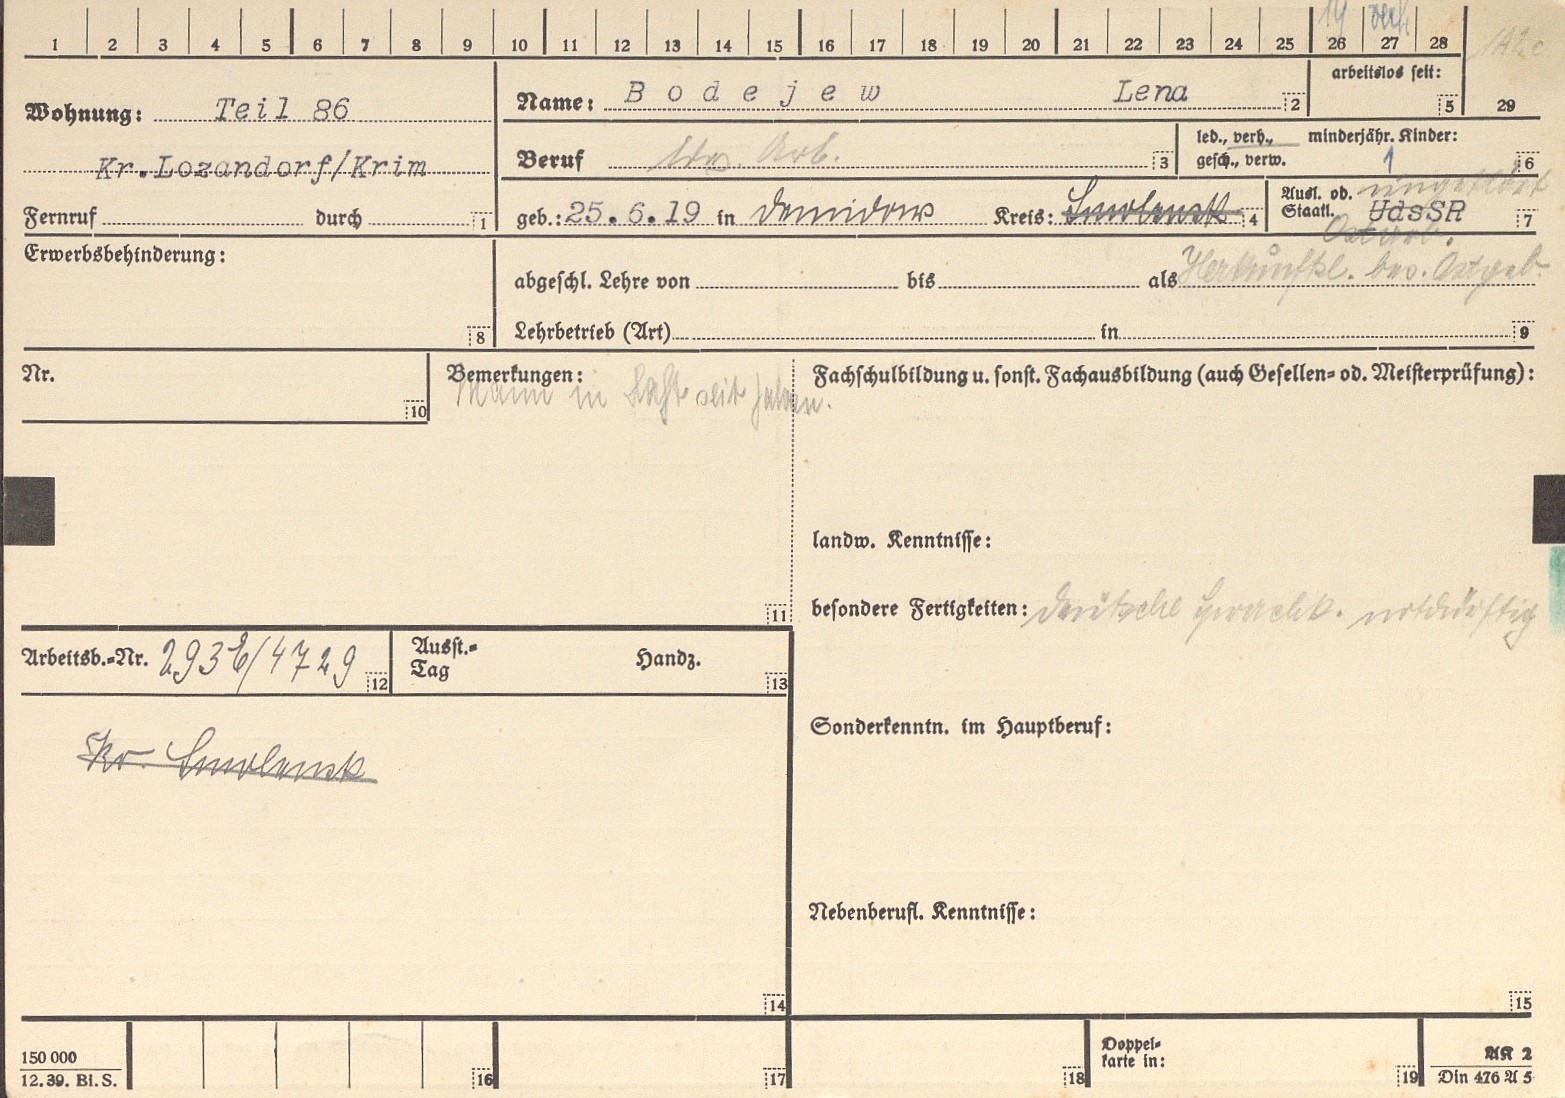 14 verh
1 2 3 4 5 6 7 8 9 10 11 12 13 14 15 16 17 18 19 20 21 22 23 24 25 26 27 28
Wohnung: Teil 86
Kr.Lozandorf/Krim
Fernruf durch 1
Name: Bodejew Lena 2
arbeitslos seit: 5
29
Beruf Arb. 3
led., verh., minderjähr. Kinder:
gesch., verw. 1 6
geb.: 25.6.19 in Demidow Kreis: Smolensk 4
Ausl. od. ungeklärt
Staatl. UdsSR 7
Ostarb.
Erwerbsbehinderung:
8
abgeschl. Lehre von bis als Herkunftsl. bes. Ostgeb.
Lehrbetrieb (Art) in 9
Nr.
10
Bemerkungen:
Mann in Haft seit Jahren.
11
Fachschulbildung u. sonst. Fachausbildung (auch Gesellen- od. Meisterprüfung):
landw. Kenntnisse:
besondere Fertigkeiten: Deutsche Sprachk. notdürftig
Arbeitsb.-Nr. 293 /4729 12
Ausst.-
Tag Handz. 13
Kr. Smolensk
14
Sonderkenntn. im Hauptberuf:
Nebenberufl. Kenntnisse:
15
150 000
12. 39. Bl. S.
16
17
18
Doppel-
karte in:
19
AK 2
Din 476 A 5